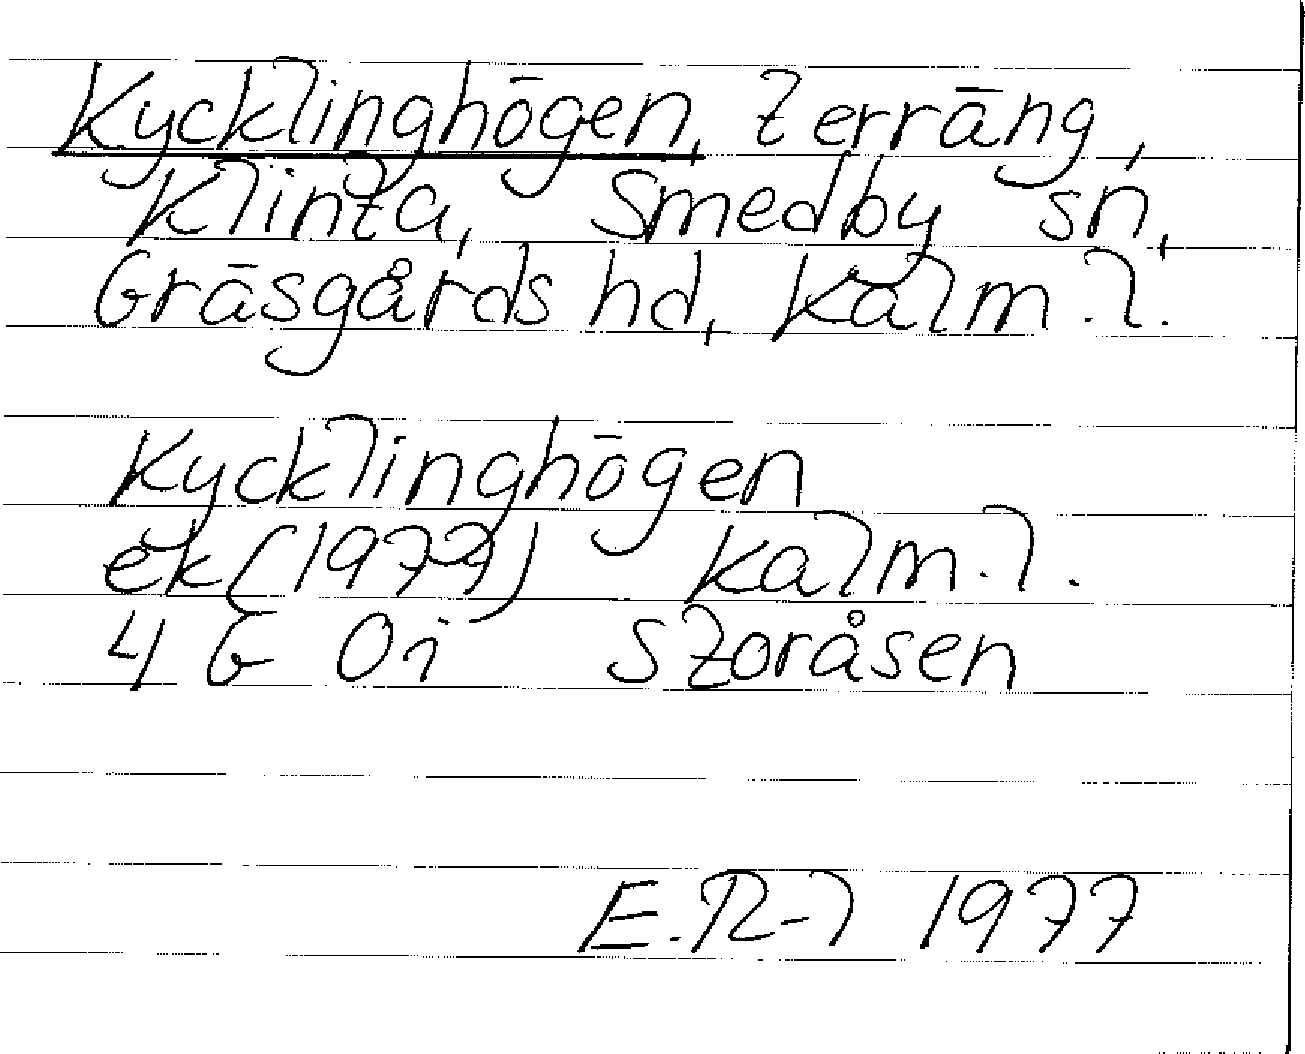 Kycklinghögen, terräng,
Klinta, Smedby sn,
Gräsgårds hd, Kalm. l.
Kycklinghögen
ek (1977) Kalm. l.
4 G 0i Storåsen
E. R-l 1977